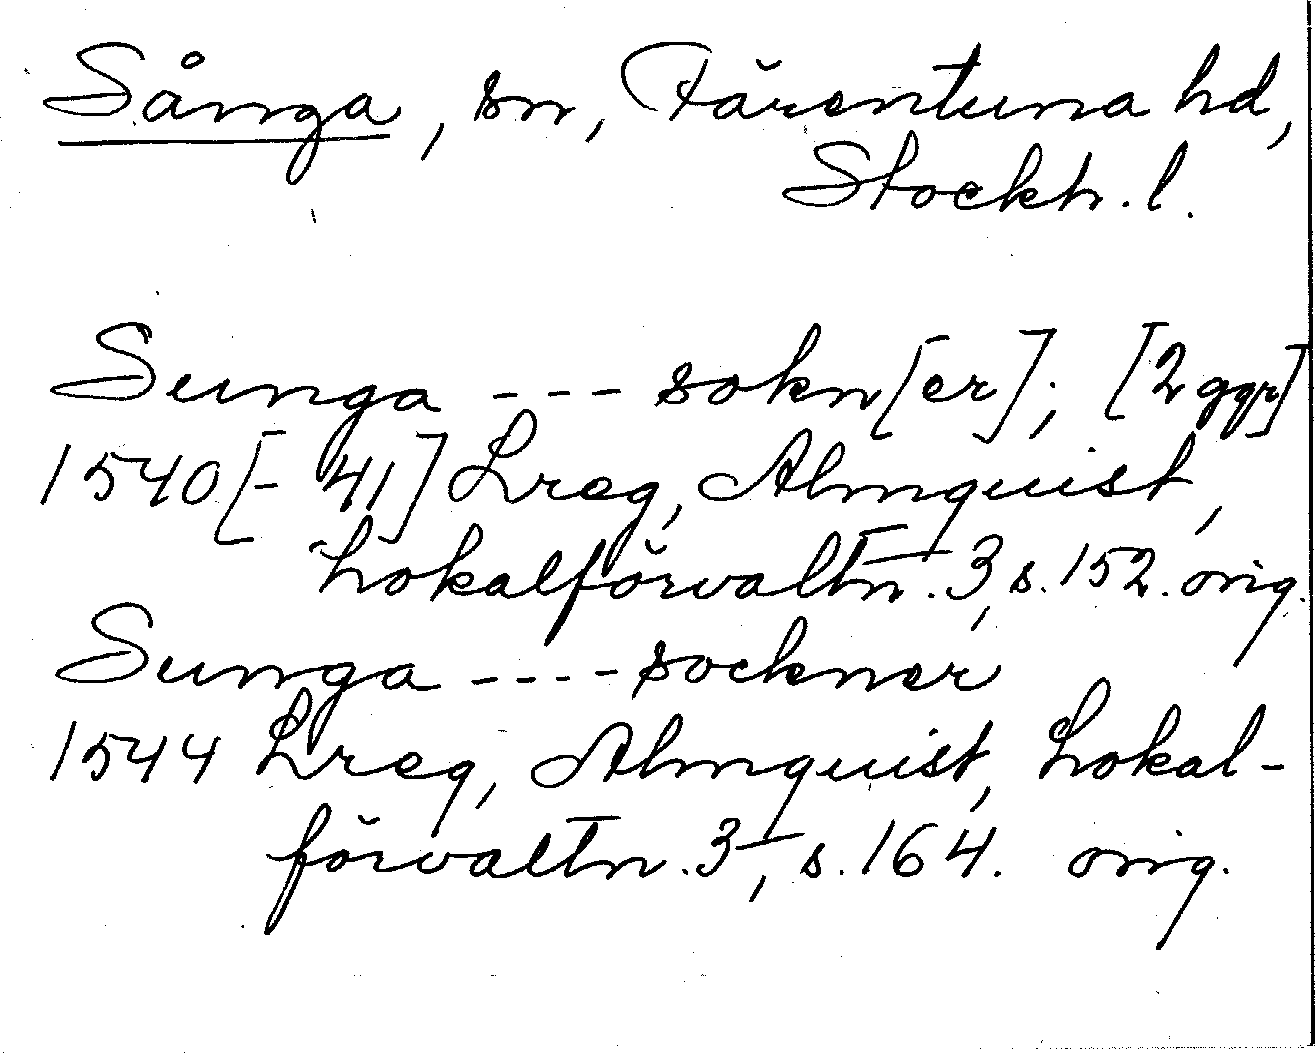 Sånga, sn, Färentuna hd,
Stockh. l.
Sunga --- sokn[er]; [2 ggr]
1540[-41] Lreg, Almquist,
Lokalförvaltn. 3, s. 152. orig.
Sunga ---- sockner
1544 Lreg, Almquist, Lokal-
förvaltn. 3, s. 164. orig.